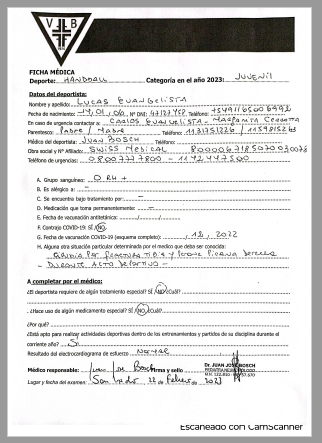 V B
FICHA MÉDICA
Deporte: HANDBALL Categoría en el año 2023: JUVENIL
Datos del deportista:
Nombre y apellido: LUCAS EVANGELISTA
Fecha de nacimiento: 14/01/06 Nº DNI: Teléfono:
En caso de urgencia contactar a: CARLOS EVANGELISTA - MARGARITA
Parentesco: PADRE / MADRE Teléfono: /
Médico del deportista: JUAN BOSCH Teléfono:
Obra social y Nº Afiliado: SWISS MEDICAL
Teléfono de urgencias: 08007777800 -
A. Grupo sanguíneo: O RH +
B. Es alérgico a: -
C. Se encuentra bajo tratamiento por: -
D. Medicación que toma permanentemente: -
E. Fecha de vacunación antitetánica: / /
F. Contrajo COVID-19: SÍ /NO
G. Fecha de vacunación COVID-19 (esquema completo): /12/2022
H. Alguna otra situación particular determinada por el medico que deba ser conocida:
FRACTURA TIBIA Y PERONE PIERNA DERECHA
- DURANTE ACTO DEPORTIVO -
A completar por el médico:
¿El deportista requiere de algún tratamiento especial? SÍ /NO ¿Cuál?
¿Hace uso de algún medicamento especial? SÍ /NO ¿Cuál?
¿Por qué?
¿Está apto para realizar actividades deportivas dentro de los entrenamientos y partidos de su disciplina durante el
corriente año? Sí
Resultado del electrocardiograma de esfuerzo: Normal
Dr. JUAN JOSÉ BOSCH
Médico responsable: Juan J. Bosch Firma y sello
Lugar y fecha del examen: San Isidro 22 de Febrero de 2023
Escaneado con CamScanner